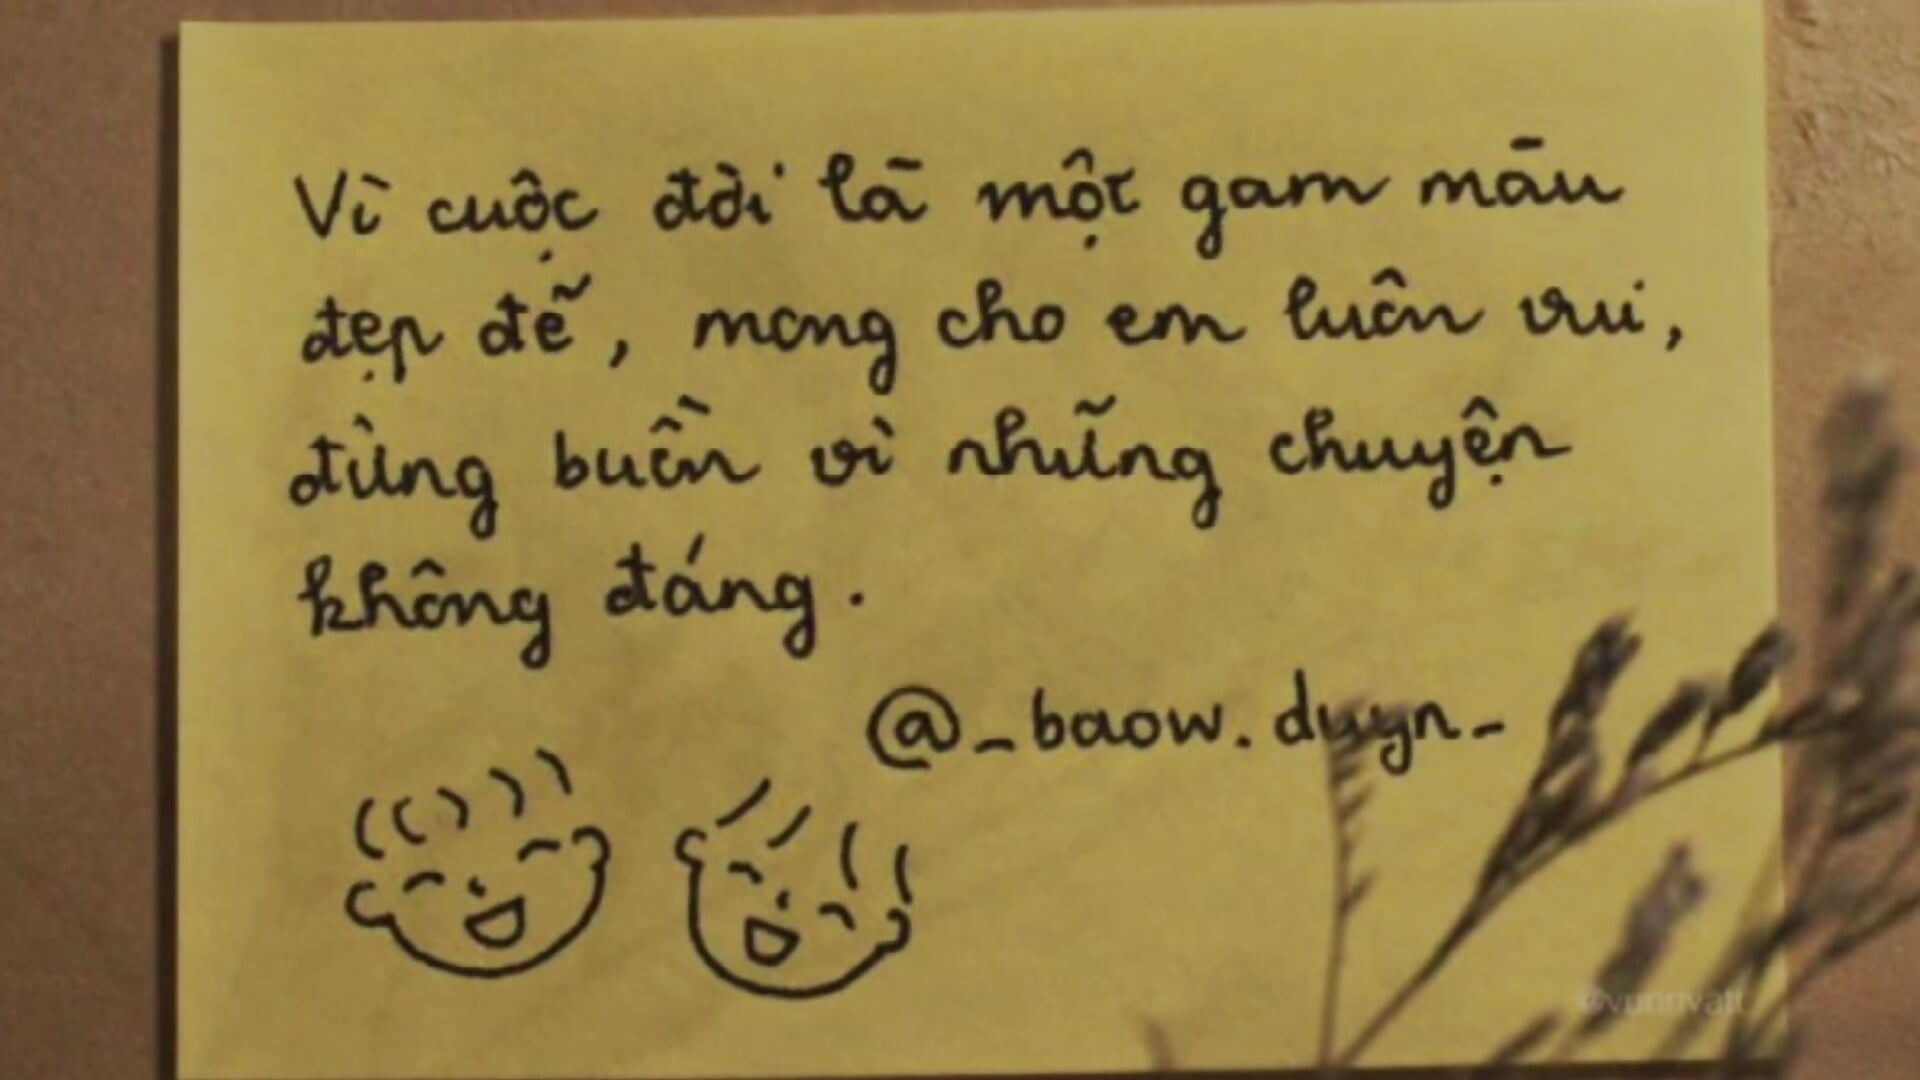 Vì cuộc đời là một gam màu
đẹp đẽ, mong cho em luôn vui,
đừng buồn vì những chuyện
không đáng.
@_baow.duyn_